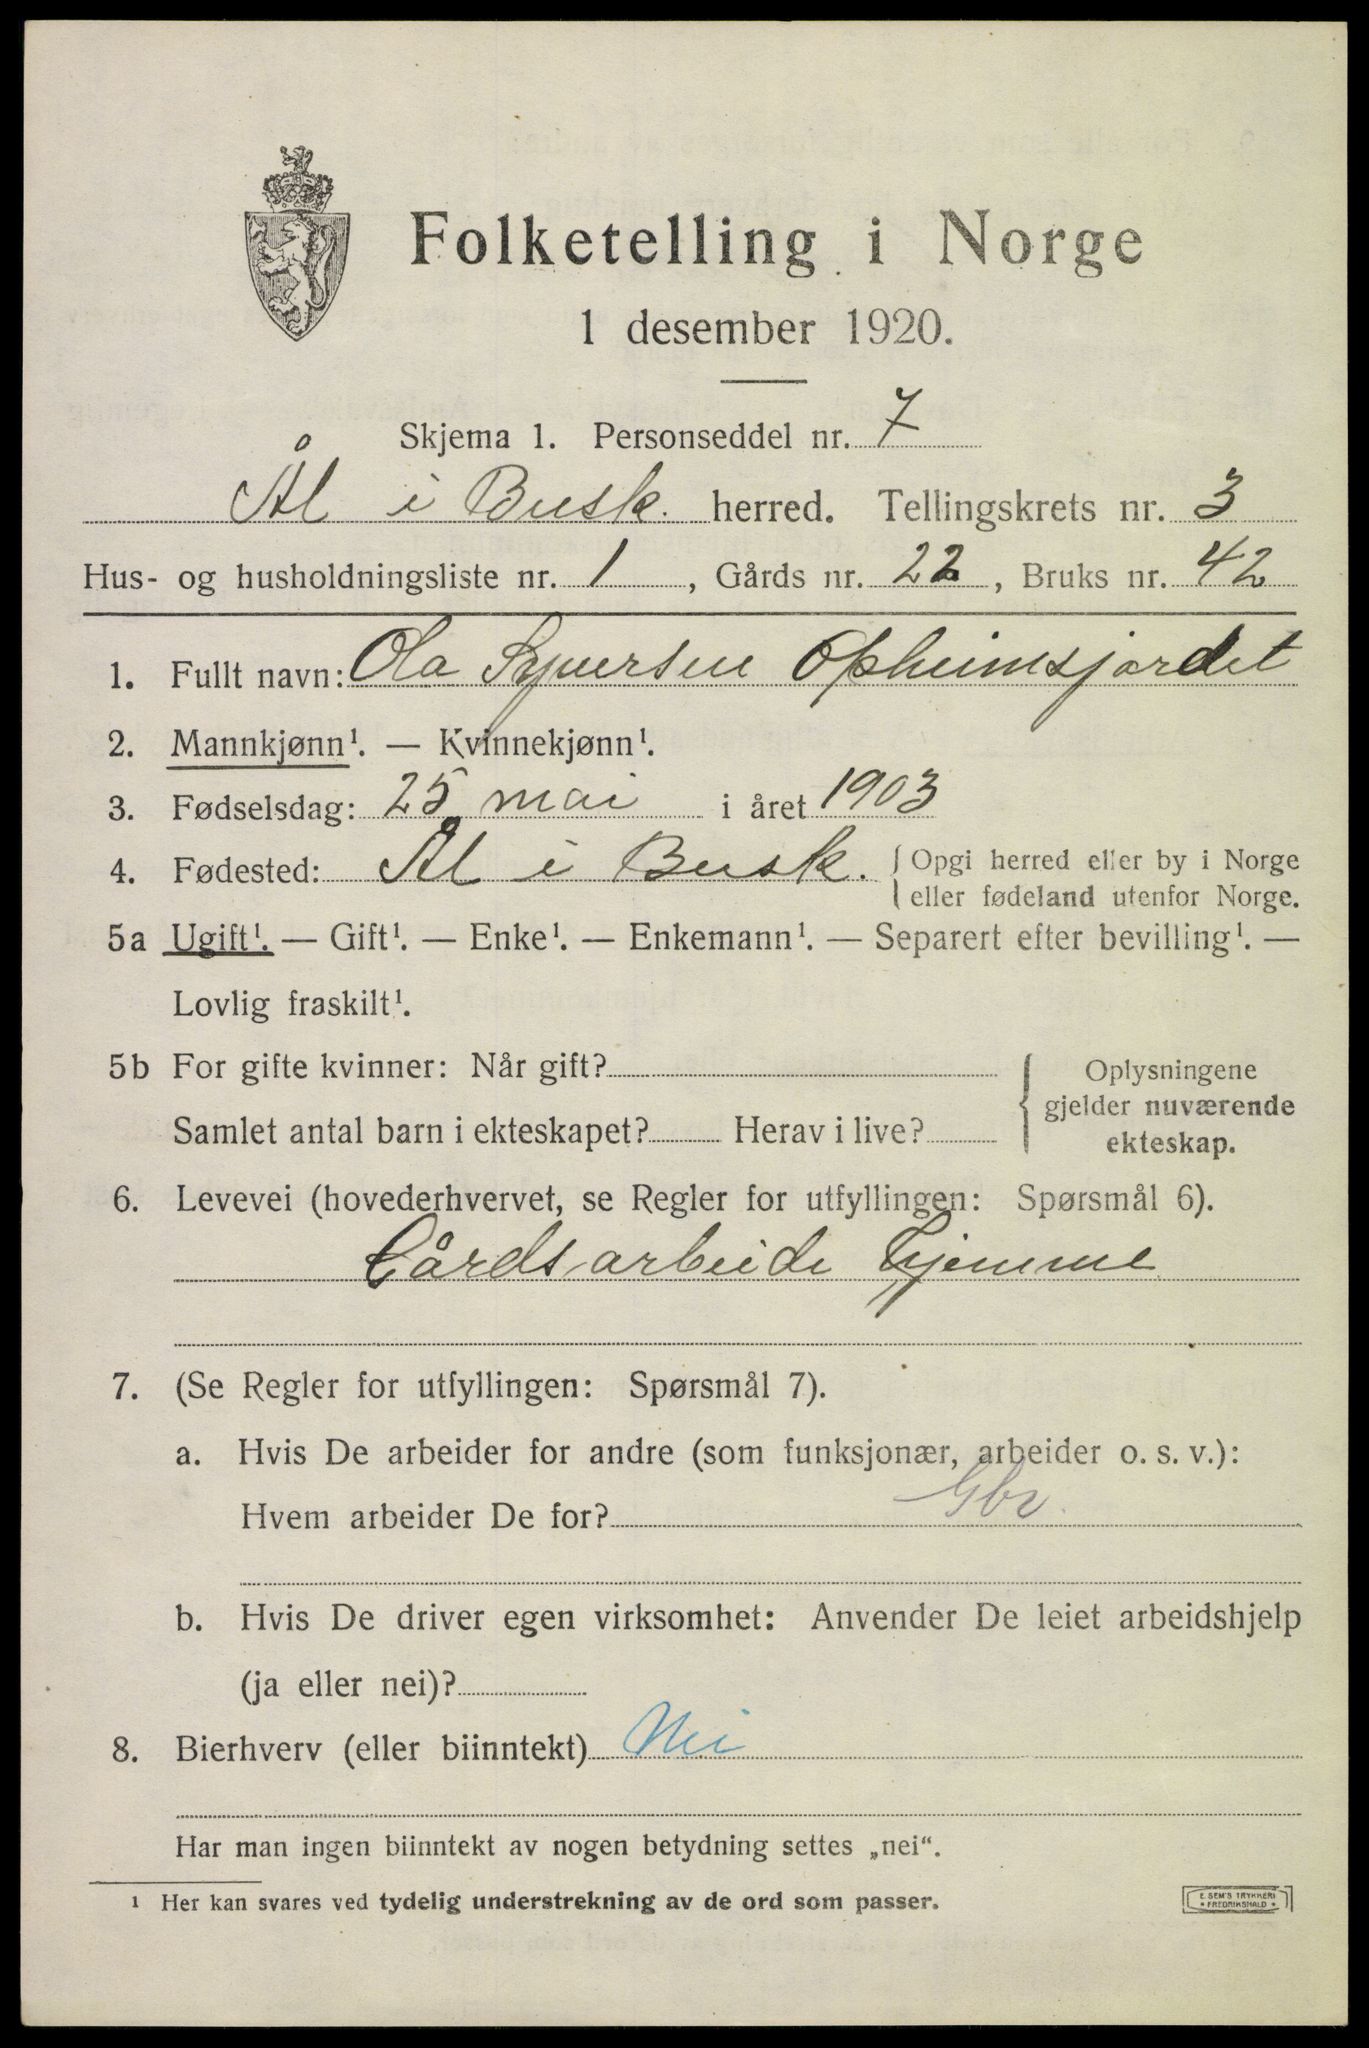 Folketelling i Norge
1 desember 1920.
Skjema 1. Personseddel nr. 7
Ål i Busk. herred. Tellingskrets nr. 3
Hus- og husholdningsliste nr. 1, Gårds nr. 22, Bruks nr. 42
1. Fullt navn: Ola Syversen Opheimsjordet
2. Mannkjønn¹. — Kvinnekjønn¹.
3. Fødselsdag: 25 mai i året 1903
4. Fødested: Ål i Busk. { Opgi herred eller by i Norge
eller fødeland utenfor Norge.
5a Ugift¹. — Gift¹. — Enke¹. — Enkemann¹. — Separert efter bevilling¹. —
Lovlig fraskilt¹.
5b For gifte kvinner: Når gift?
Samlet antal barn i ekteskapet? Herav i live?
Oplysningene
gjelder nuværende
ekteskap.
6. Levevei (hovederhvervet, se Regler for utfyllingen: Spørsmål 6).
Gårdsarbeide hjemme
7. (Se Regler for utfyllingen: Spørsmål 7).
a. Hvis De arbeider for andre (som funksjonær, arbeider o. s. v.):
Gbr.
Hvem arbeider De for?
b. Hvis De driver egen virksomhet: Anvender De leiet arbeidshjelp
(ja eller nei)?
8. Bierhverv (eller biinntekt) Nei
Har man ingen biinntekt av nogen betydning settes „nei“.
¹ Her kan svares ved tydelig understrekning av de ord som passer.
E. SEM'S TRYKKERI
* FREDRIKSHALD *